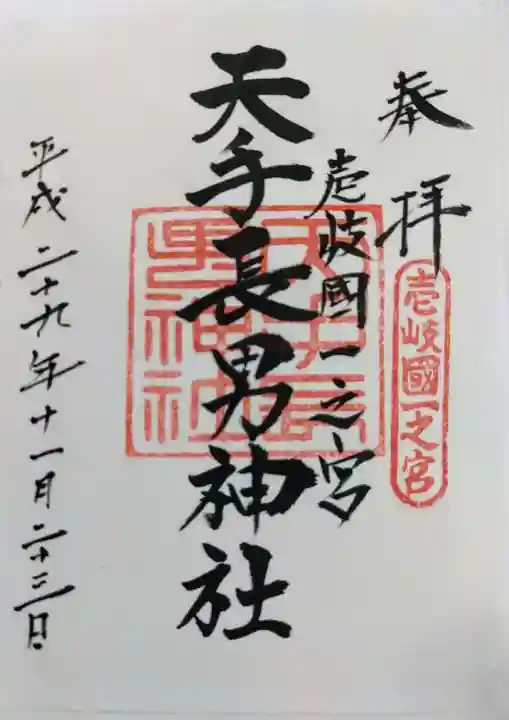 奉拝
壱岐國一之宮
壱岐國一之宮
天手長男神社
天手長男神社
平成二十九年十一月二十三日